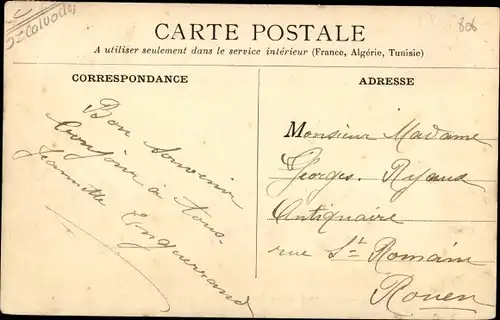 Calvados
806
CARTE POSTALE
A utiliser seulement dans le service intérieur (France, Algérie, Tunisie)
CORRESPONDANCE
Bon souvenir
bonjour à tous
Jeannette Enguerrand
ADRESSE
Monsieur Madame
Georges
Antiquaire
rue St Romain
Rouen